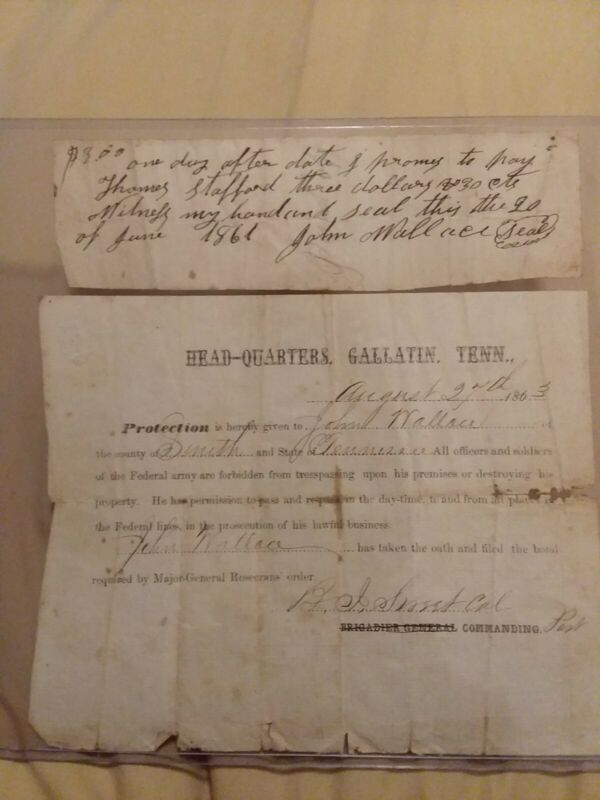 $3.00 one day after date I promes to pay
Thomas Stafford three dollars & 30 cts
Witness my hand and seal this the 20
of June 1861 John Wallace seal
HEAD-QUARTERS, GALLATIN, TENN.,
August 27th 1863
Protection is hereby given to John Wallace of
the county of Smith and State of Tennessee All officers and soldiers
of the Federal army are forbidden from tresspassing upon his premises or destroying his
property. He has permission to pass and repass in the day-time, to and from all places in
the Federal lines, in the prosecution of his lawful business.
John Wallace has taken the oath and filed the bond
required by Major-General Rosecrans' order.
B. J. Sweet Col
BRIGADIER GENERAL COMMANDING, Post